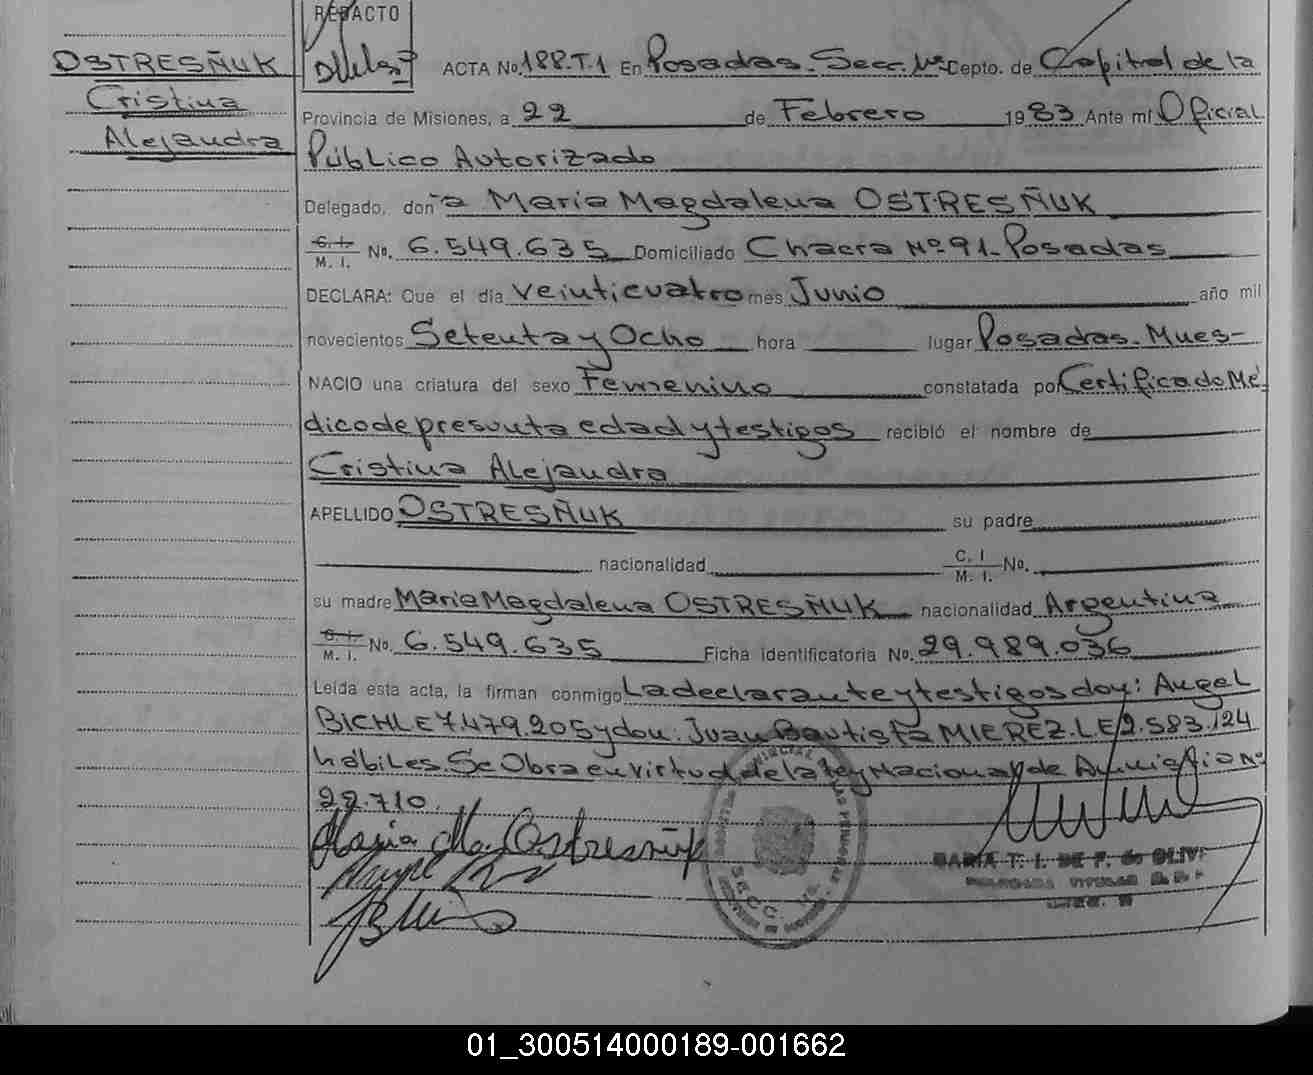 REDACTO
OSTRESÑUK
Cristina
Alejandra
ACTA No. 188.T.1 En Posadas. Secc. 1ª Depto. de Capital de la
Provincia de Misiones, a 22 de Febrero 1983 Ante mí Oficial
Público Autorizado
Delegado, don a Maria Magdalena OSTRESÑUK
C. I.
M. I. No. 6.549.635 Domiciliado Chacra Nº 91- Posadas
DECLARA: Que el día Veinticuatro mes Junio año mil
novecientos Setenta y Ocho hora lugar Posadas. Mnes-
NACIO una criatura del sexo Femenino constatada por Certificado Mé
dico de presunta edad y testigos recibió el nombre de
Cristina Alejandra
APELLIDO OSTRESÑUK su padre
nacionalidad C. I
M. I. No.
su madre Maria Magdalena OSTRESÑUK nacionalidad Argentina
C. I.
M. I. No. 6.549.635 Ficha identificatoria No. 29.989.036
Leída esta acta, la firman conmigo La declarante y testigos don: Angel
BICHLE 7.479.205 y don: Juan Bautista MIEREZ.LE 2.583.124
hábiles. Se Obra en virtud de la Ley Nacional de Amnistia Nº
22.710.
Maria M. Ostresñuk
SECC.
MARIA T. I. DE F. de OLIV
TITULAR
01_300514000189-001662